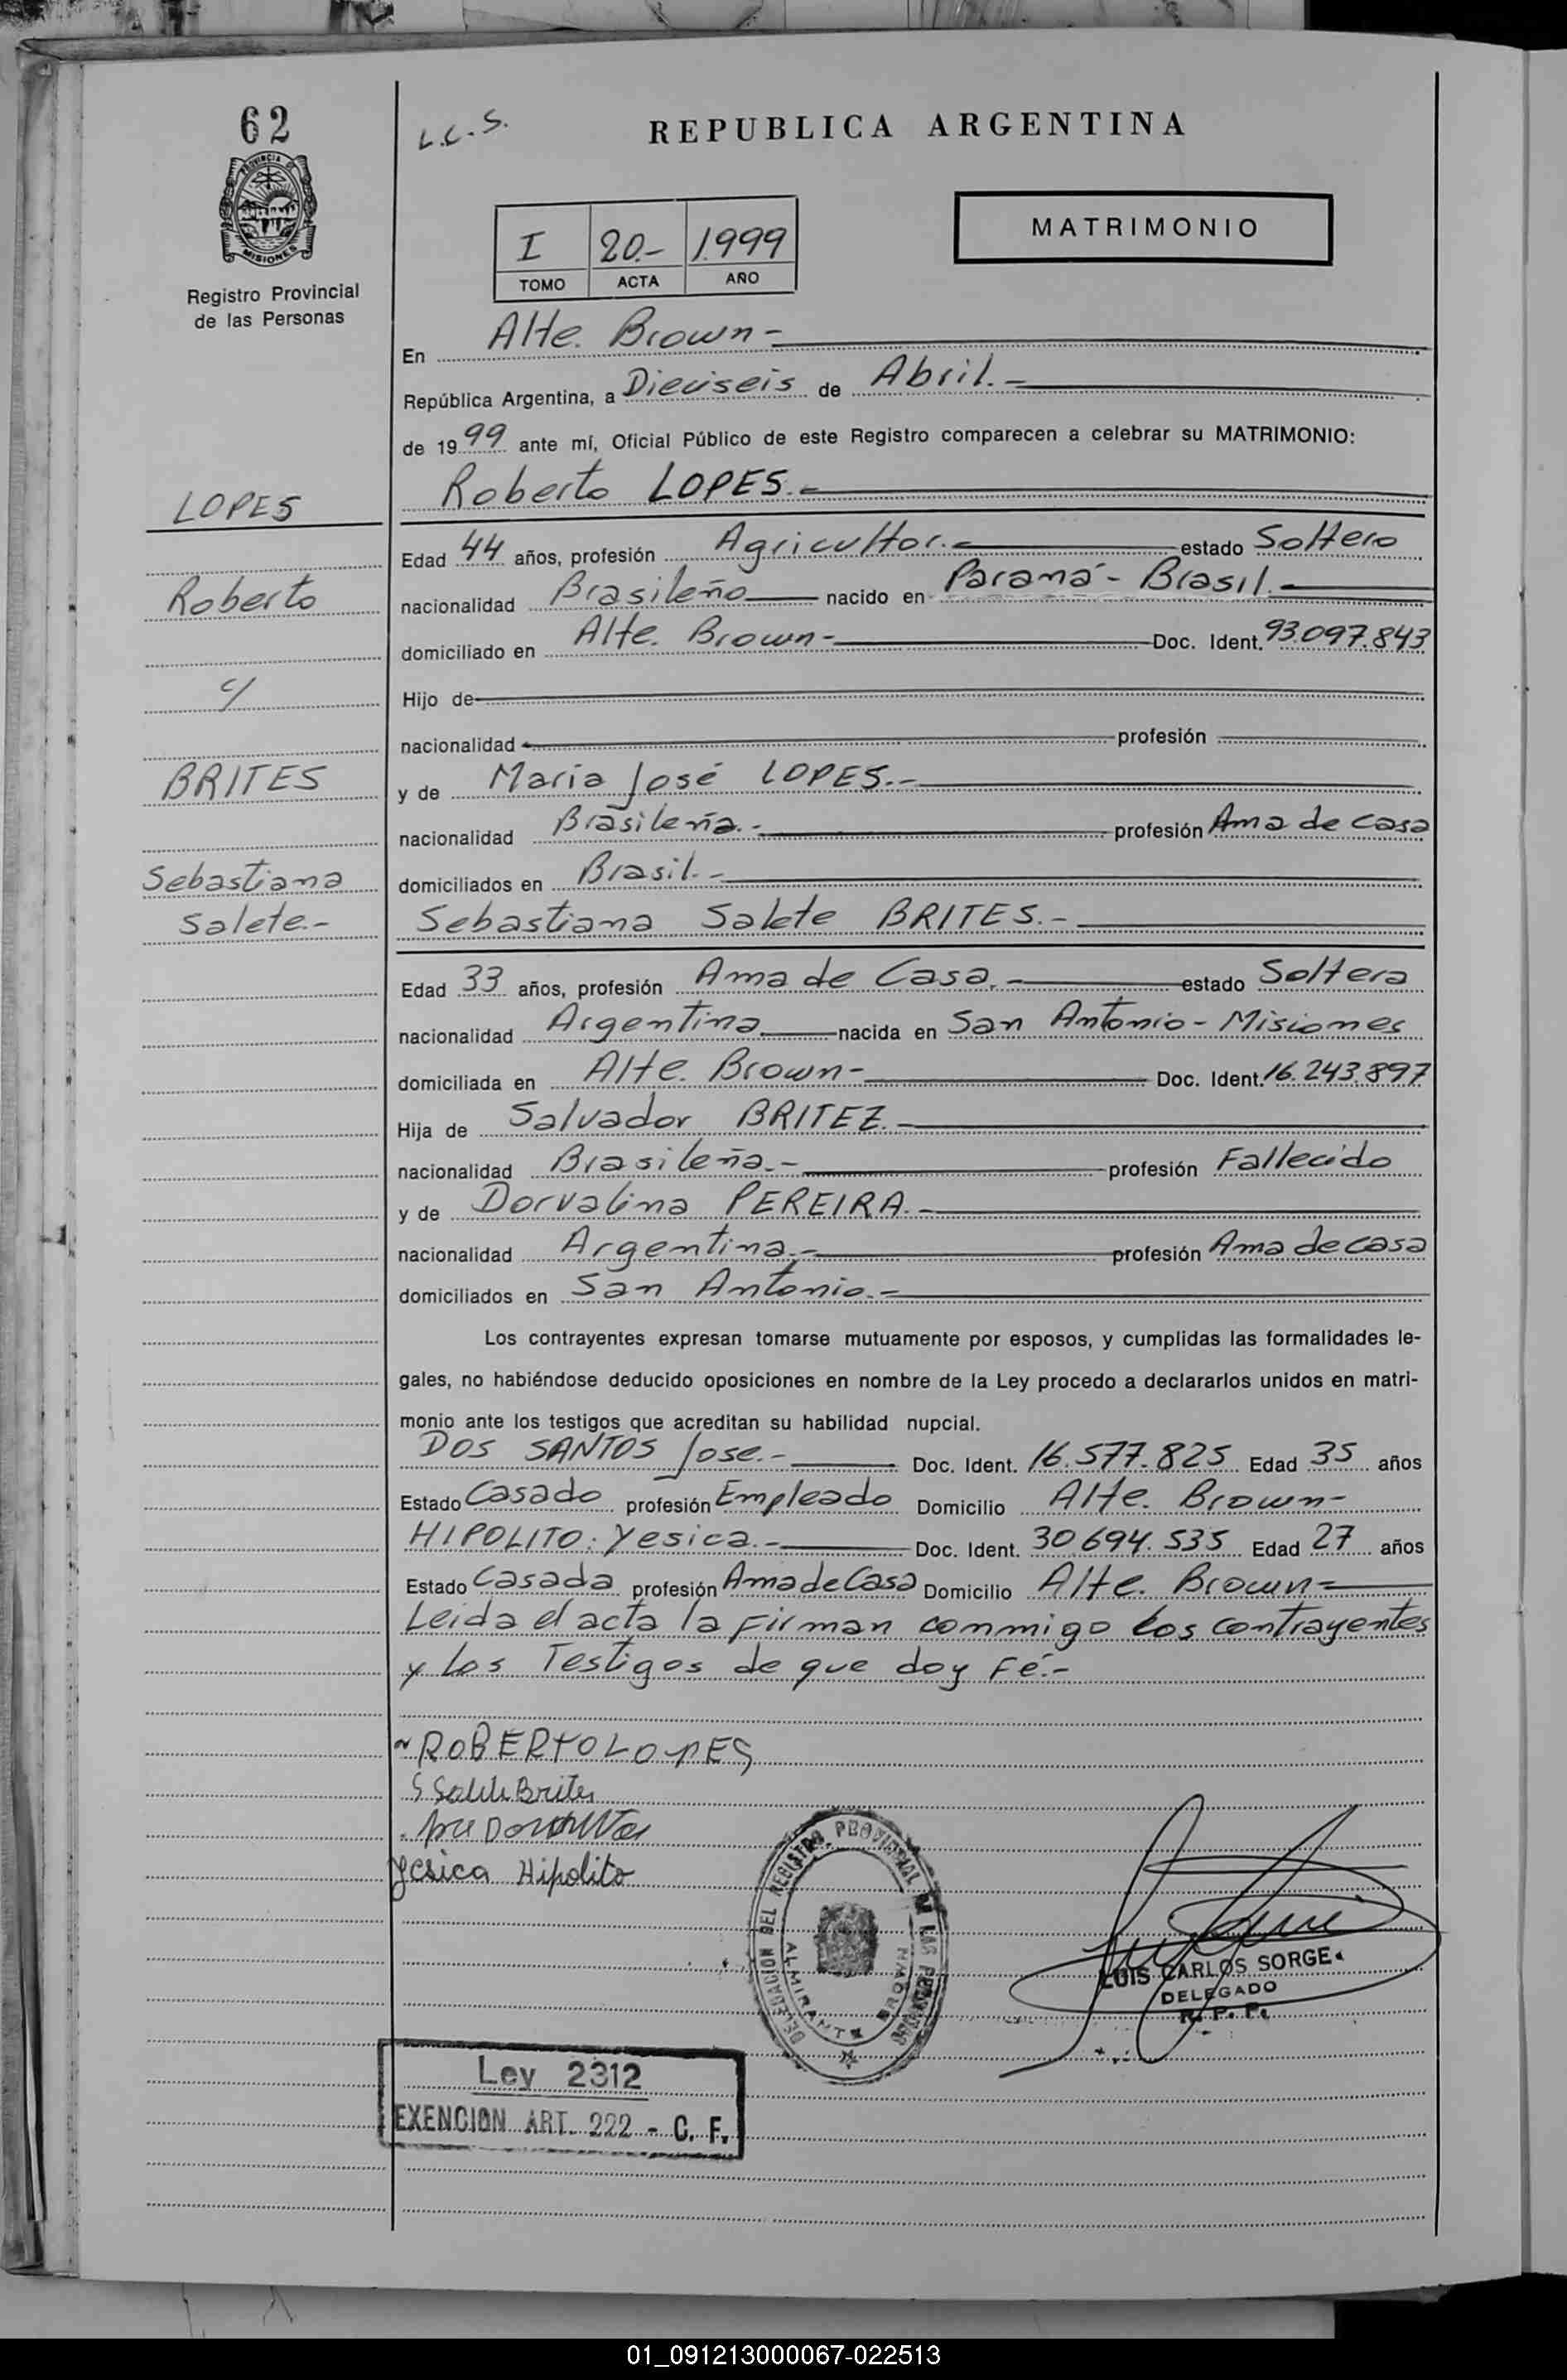 62
L.C.S.
REPUBLICA ARGENTINA
PROVINCIA DE
MISIONES
Registro Provincial
de las Personas
I 20.- 1.999
TOMO ACTA AÑO
MATRIMONIO
En Alte. Brown -
República Argentina, a Dieciseis de Abril. -
de 1999 ante mí, Oficial Público de este Registro comparecen a celebrar su MATRIMONIO:
LOPES
Roberto LOPES. -
Edad 44 años, profesión Agricultor. - estado Soltero
Roberto
nacionalidad Brasileño nacido en Paraná - Brasil. -
domiciliado en Alte. Brown - Doc. Ident. 93.097.843
c/
Hijo de
nacionalidad profesión
BRITES
y de María José LOPES. -
nacionalidad Brasileña. - profesión Ama de casa
Sebastiana
domiciliados en Brasil. -
Salete. -
Sebastiana Salete BRITES. -
Edad 33 años, profesión Ama de Casa. - estado Soltera
nacionalidad Argentina nacida en San Antonio - Misiones
domiciliada en Alte. Brown - Doc. Ident. 16.243.897
Hija de Salvador BRITEZ. -
nacionalidad Brasileña. - profesión Fallecido
y de Dorvalina PEREIRA. -
nacionalidad Argentina. - profesión Ama de casa
domiciliados en San Antonio. -
Los contrayentes expresan tomarse mutuamente por esposos, y cumplidas las formalidades le-
gales, no habiéndose deducido oposiciones en nombre de la Ley procedo a declararlos unidos en matri-
monio ante los testigos que acreditan su habilidad nupcial.
DOS SANTOS Jose. - Doc. Ident. 16.577.825 Edad 35 años
Estado Casado profesión Empleado Domicilio Alte. Brown -
HIPOLITO: Yesica. - Doc. Ident. 30.694.535 Edad 27 años
Estado Casada profesión Ama de Casa Domicilio Alte. Brown -
Leida el acta la Firman conmigo los contrayentes
y los Testigos de que doy Fé. -
ROBERTO LOPES
S Salete Brites
Yesica Hipolito
DELEGACION DEL REGISTRO PROVINCIAL DE LAS PERSONAS
ALMIRANTE BROWN
LUIS CARLOS SORGE
DELEGADO
R. P. P.
Ley 2312
EXENCION ART. 222 - C. F.
01_091213000067-022513